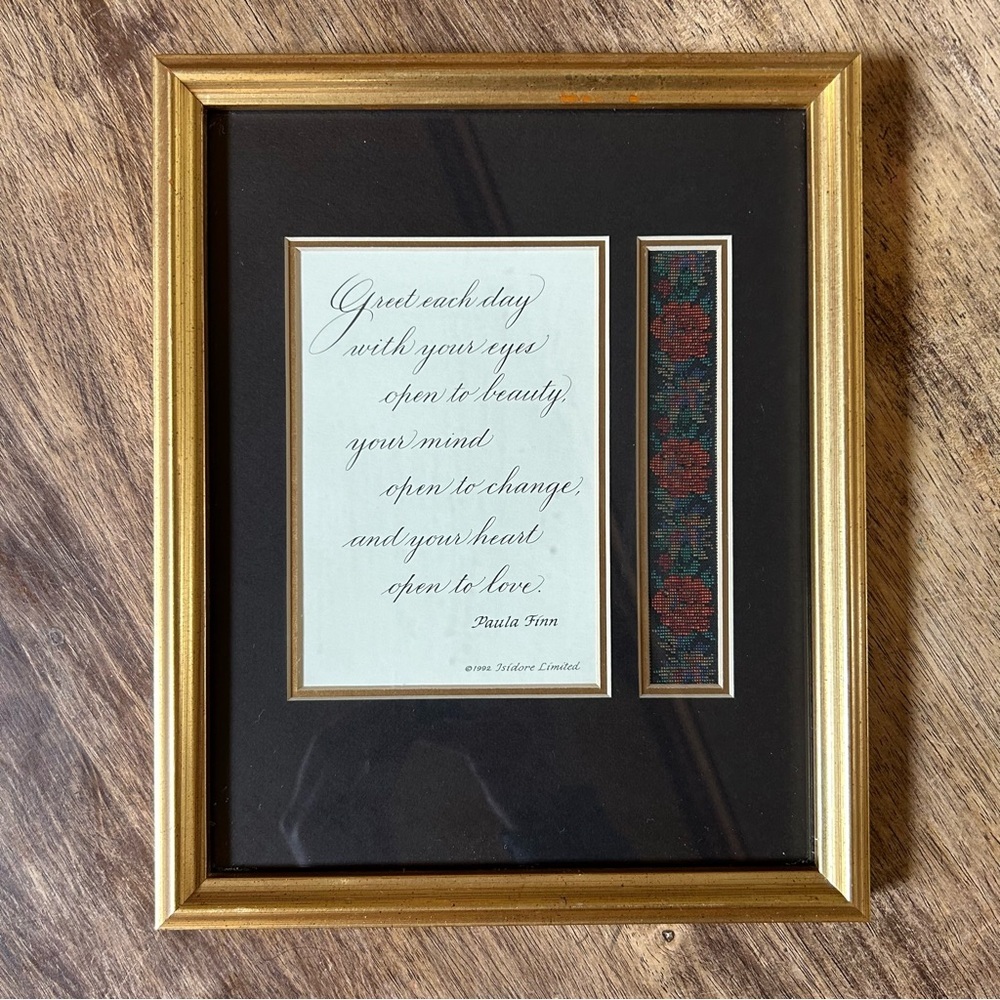 Greet each day
with your eyes
open to beauty,
your mind
open to change,
and your heart
open to love.
Paula Finn
©1992 Isidore Limited